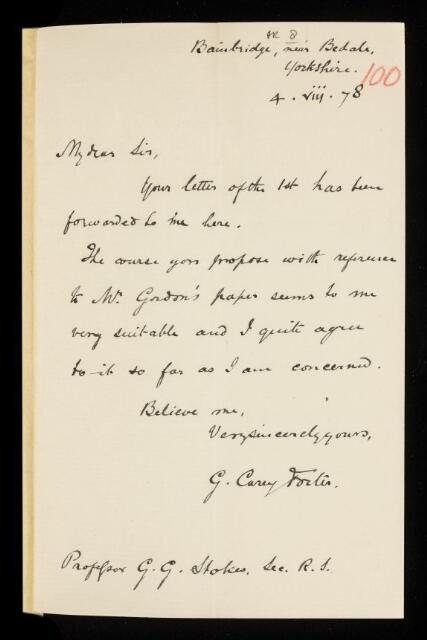 Bainbridge, near Bedale,
Yorkshire.
100
4. viii. 78
My dear Sir,
Your letter of the 1st has been
forwarded to me here.
The course you propose with reference
to Mr. Gordon's paper seems to me
very suitable and I quite agree
to it so far as I am concerned.
Believe me,
Very sincerely yours,
G. Carey Foster.
Professor G. G. Stokes, Sec. R. S.